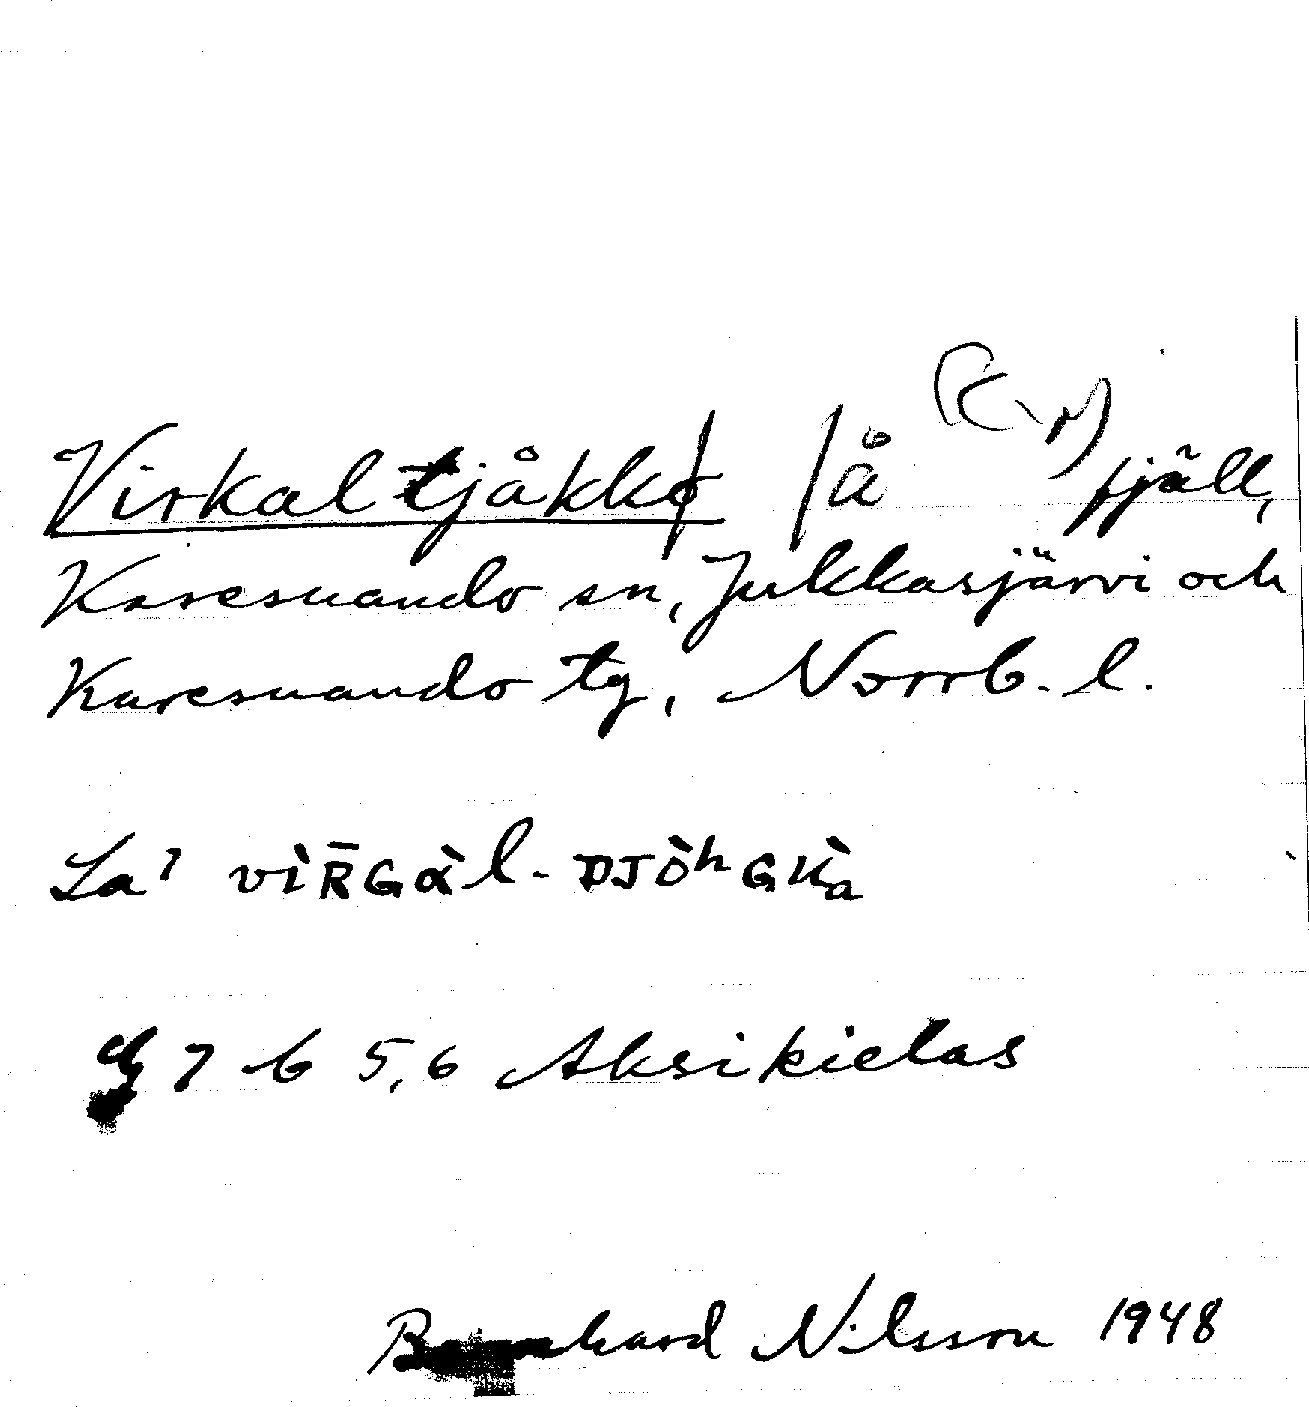 Virkaltjåkko /å (K-N) fjäll,
Karesuando sn, Jukkasjärvi och
Karesuando tg, Norrb. l.
La' vìR̄Gàl-DJÒʰGKà
7 b 5,6 Aksikielas
Bernhard Nilsson 1948